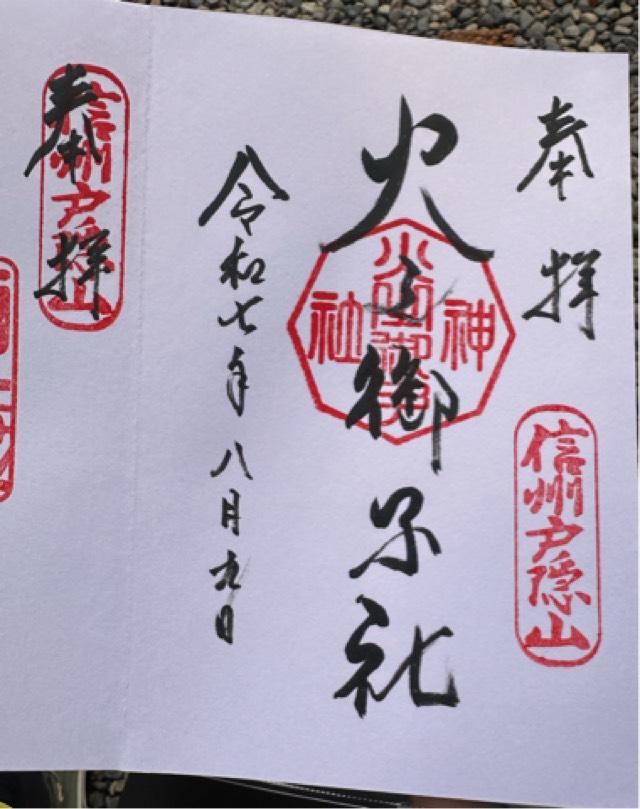 奉拝
信州戸隠山
火之御子社
神
社
令和七年八月九日
奉拝
信州戸隠山